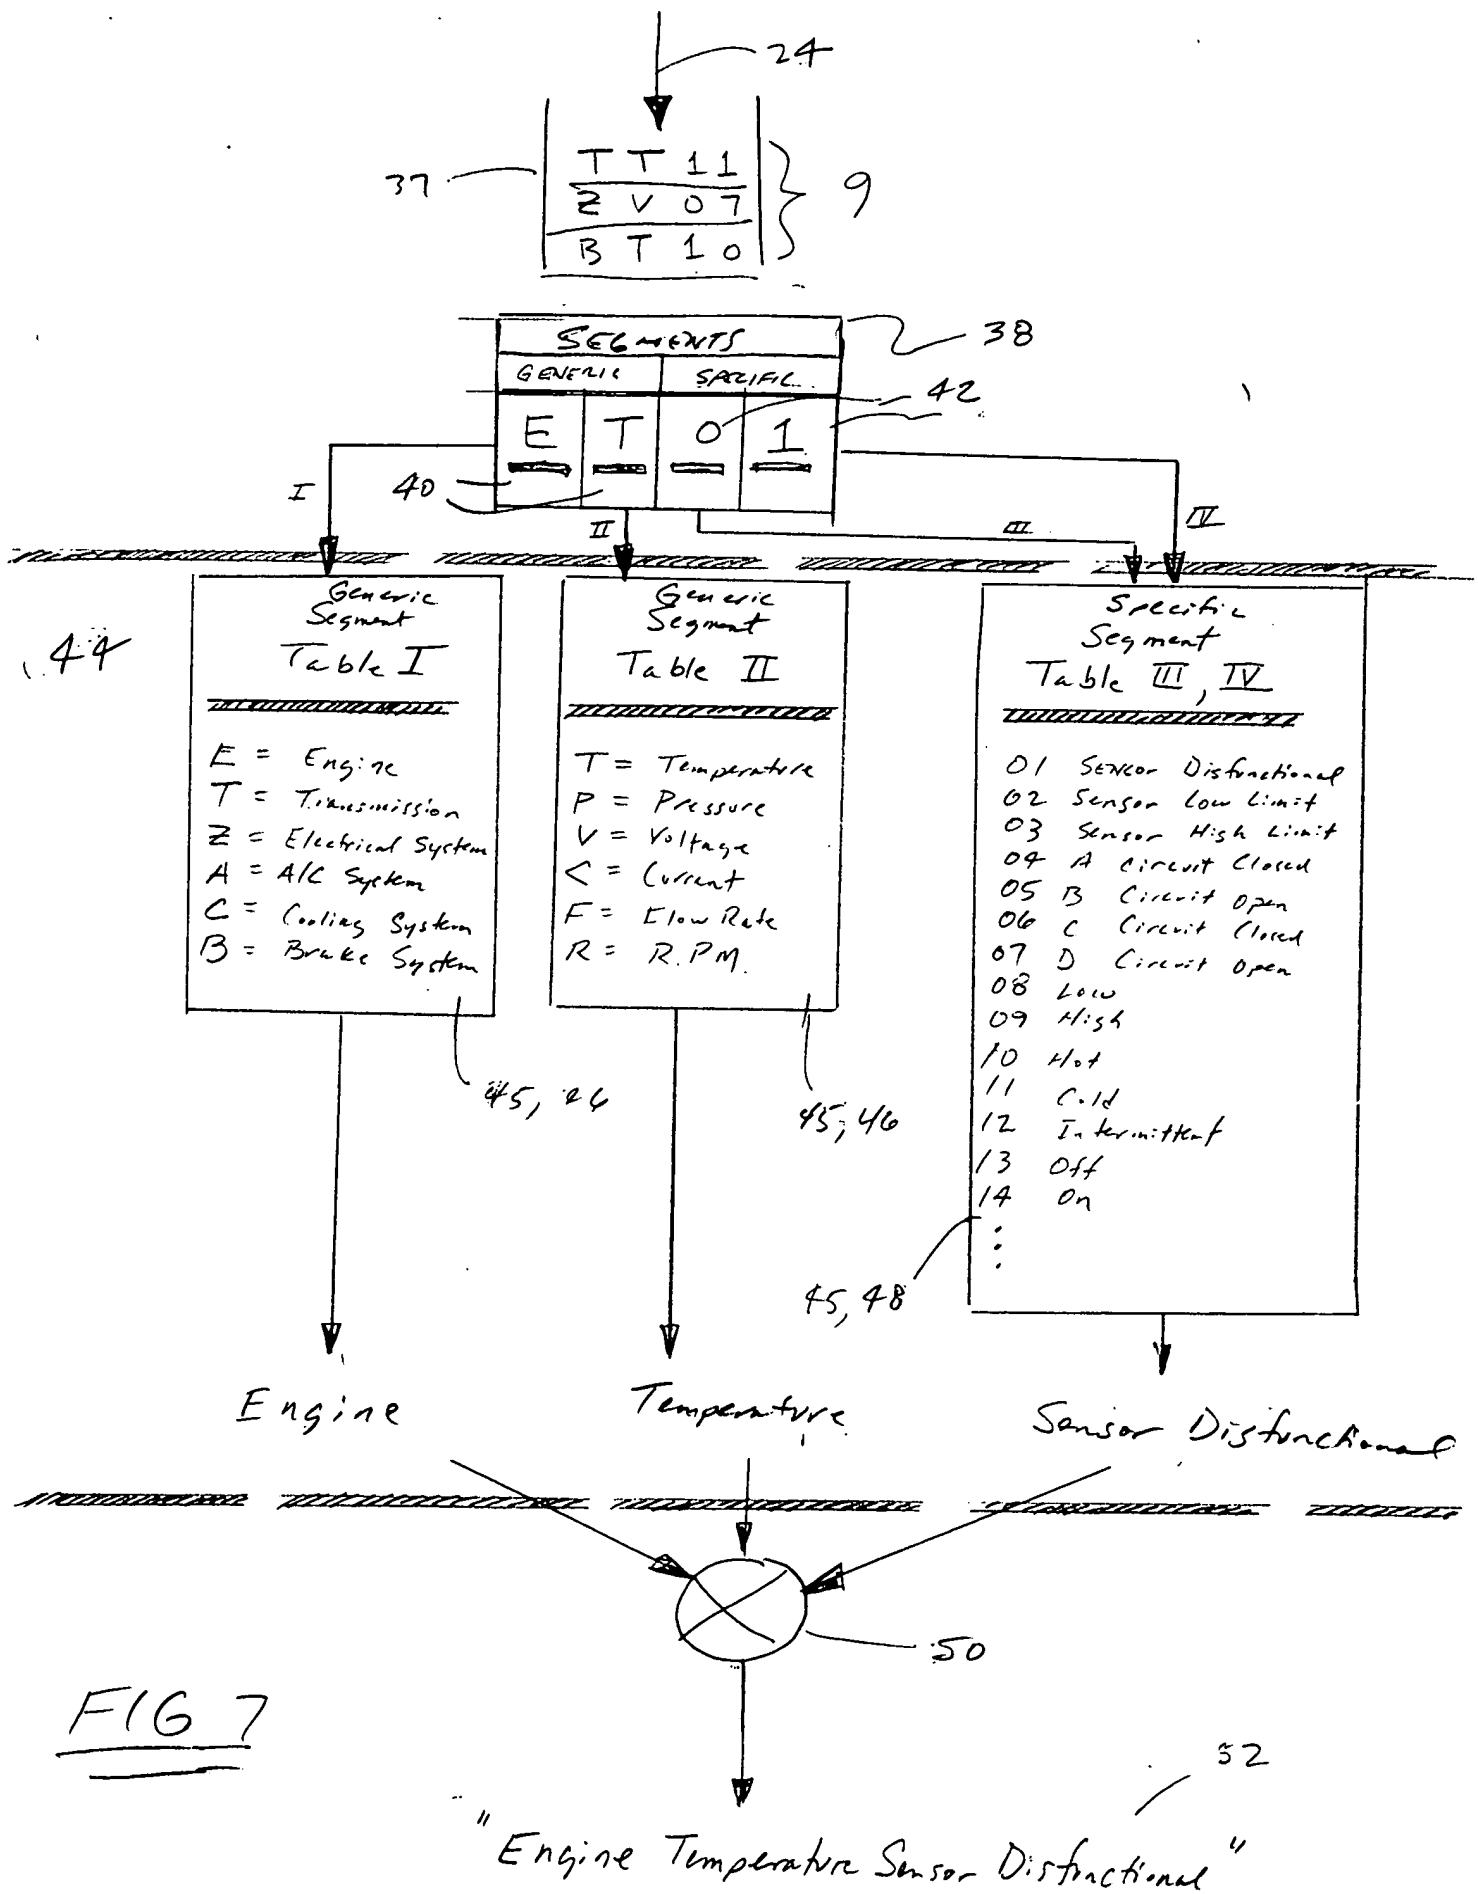 24
37
T T 1 1
Z V 0 7
B T 1 0
9
SEGMENTS
38
GENERIC
SPECIFIC
42
E T 0 1
40
I
II
III
IV
44
Generic
Segment
Table I
E = Engine
T = Transmission
Z = Electrical System
A = A/C System
C = Cooling System
B = Brake System
45, 46
Generic
Segment
Table II
T = Temperature
P = Pressure
V = Voltage
C = Current
F = Flow Rate
R = R.P.M.
45, 46
Specific
Segment
Table III, IV
01 Sensor Disfunctional
02 Sensor Low Limit
03 Sensor High Limit
04 A Circuit Closed
05 B Circuit Open
06 C Circuit Closed
07 D Circuit Open
08 Low
09 High
10 Hot
11 Cold
12 Intermittent
13 Off
14 On
45, 48
Engine
Temperature
Sensor Disfunctional
50
FIG 7
52
"Engine Temperature Sensor Disfunctional"